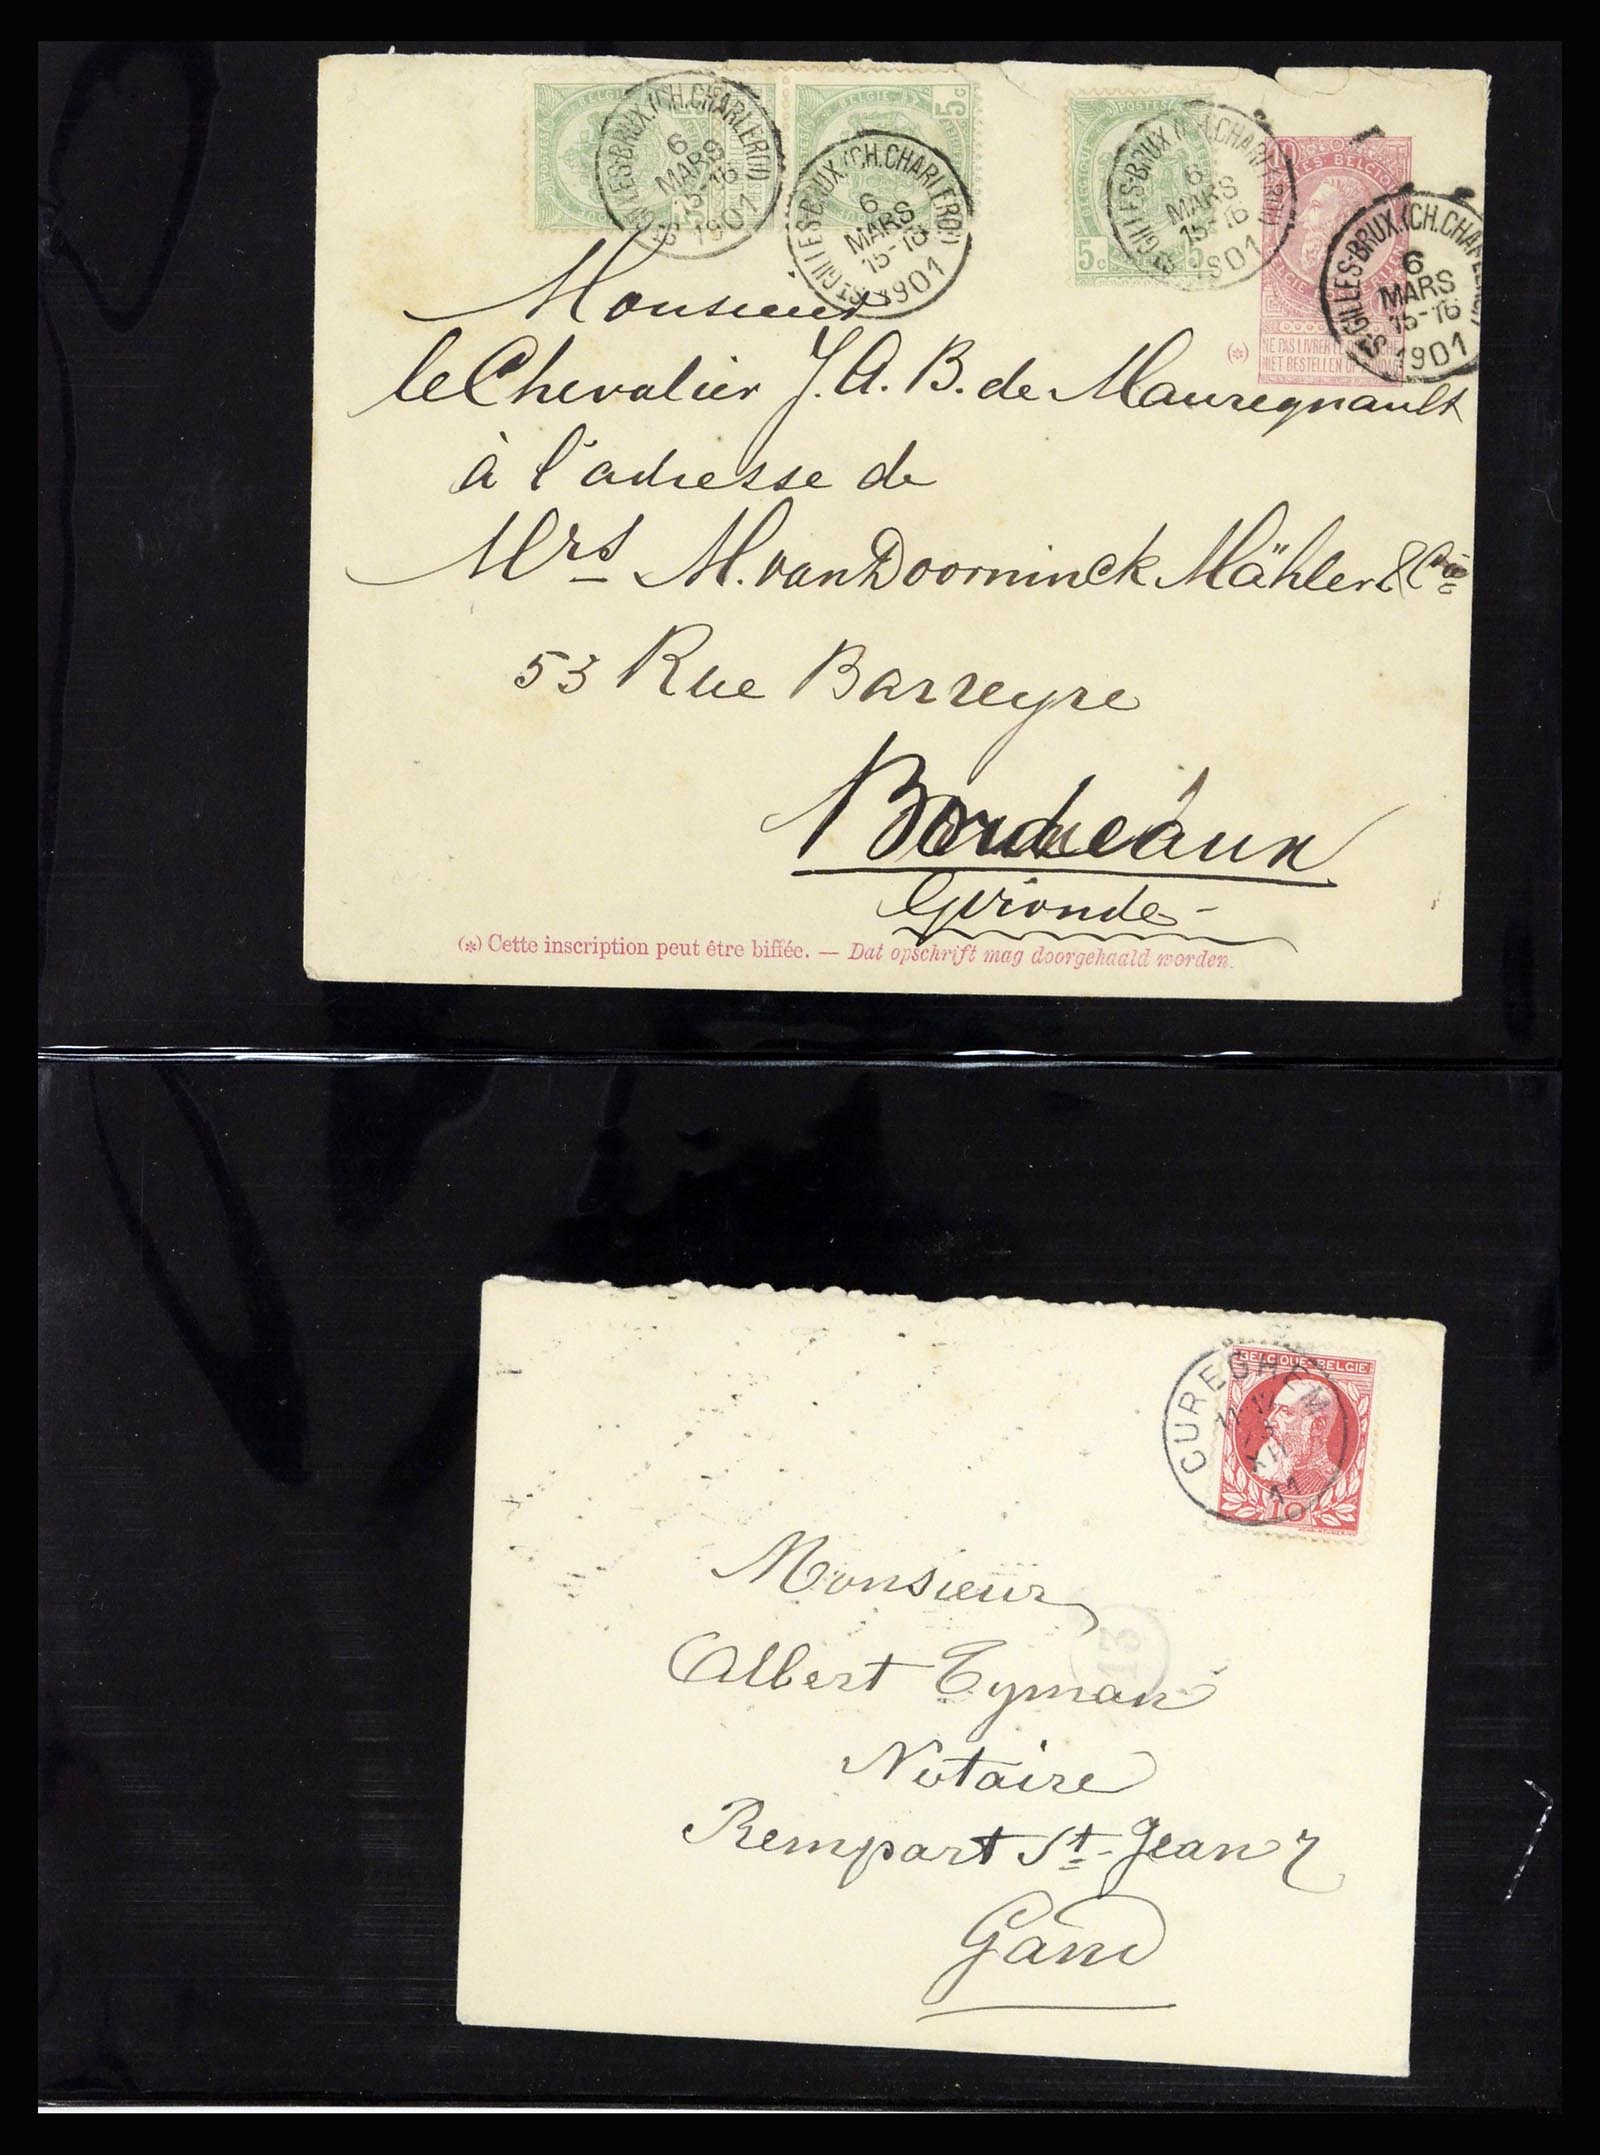 ST GILLES-BRUX. (CH. CHARLEROI)
6
MARS
15-16
1901
BELGIE
5c
ST GILLES-BRUX. (CH. CHARLEROI)
6
MARS
15-16
1901
POSTES
5c
ST GILLES-BRUX. (CH. CHARLEROI)
6
MARS
15-16
1901
ST GILLES-BRUX. (CH. CHARLEROI)
6
MARS
15-16
1901
(*)
Monsieur
le Chevalier J. A. B. de Mauregnault
à l'adresse de
Mrs M. van Doorninck Mähler & Cie
53 Rue Barreyre
Bordeaux
Gironde
(*) Cette inscription peut être biffée. — Dat opschrift mag doorgehaald worden.
BELGIQUE-BELGIE
CUREGHEM
XII
11
10
13
Monsieur
Albert Eyman
Notaire
Rempart St-Jean 7
Gand